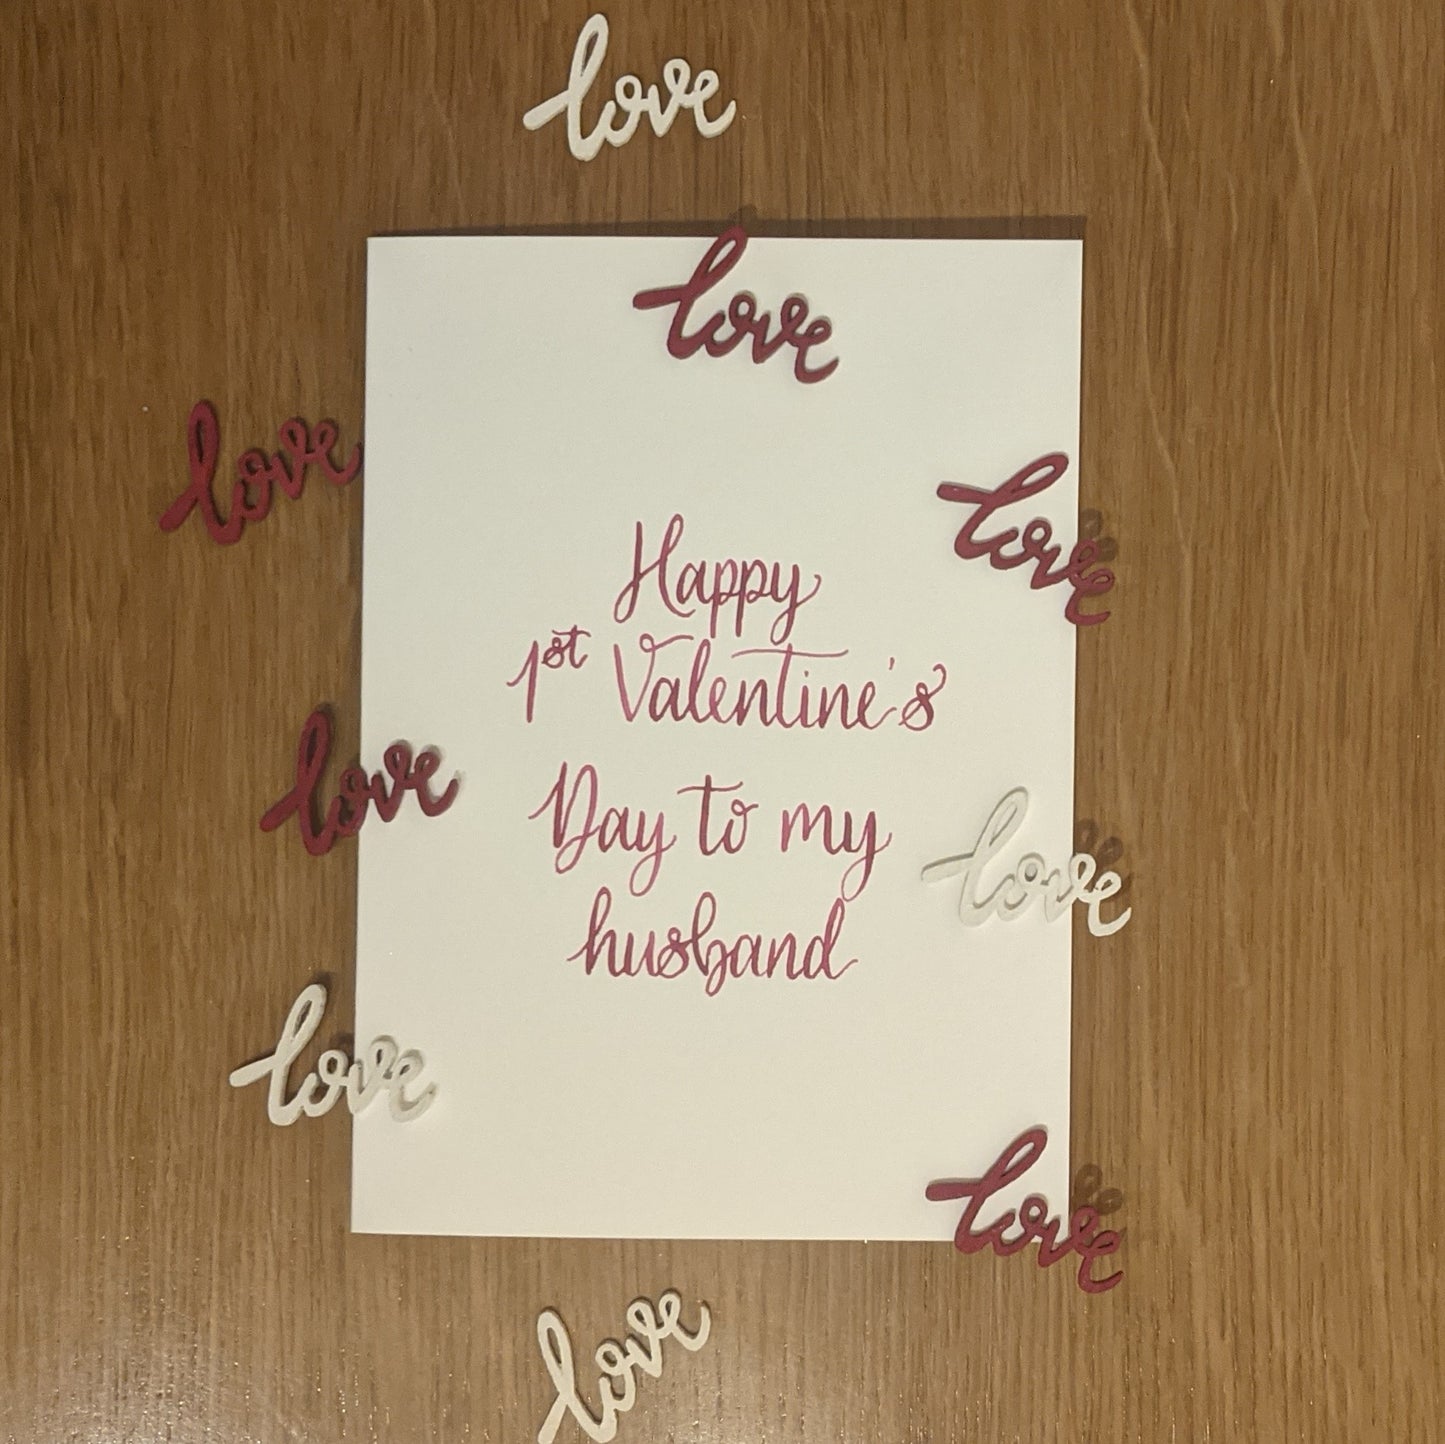 love
love
love
love
Happy
1st Valentine's
love
Day to my
love
husband
love
love
love